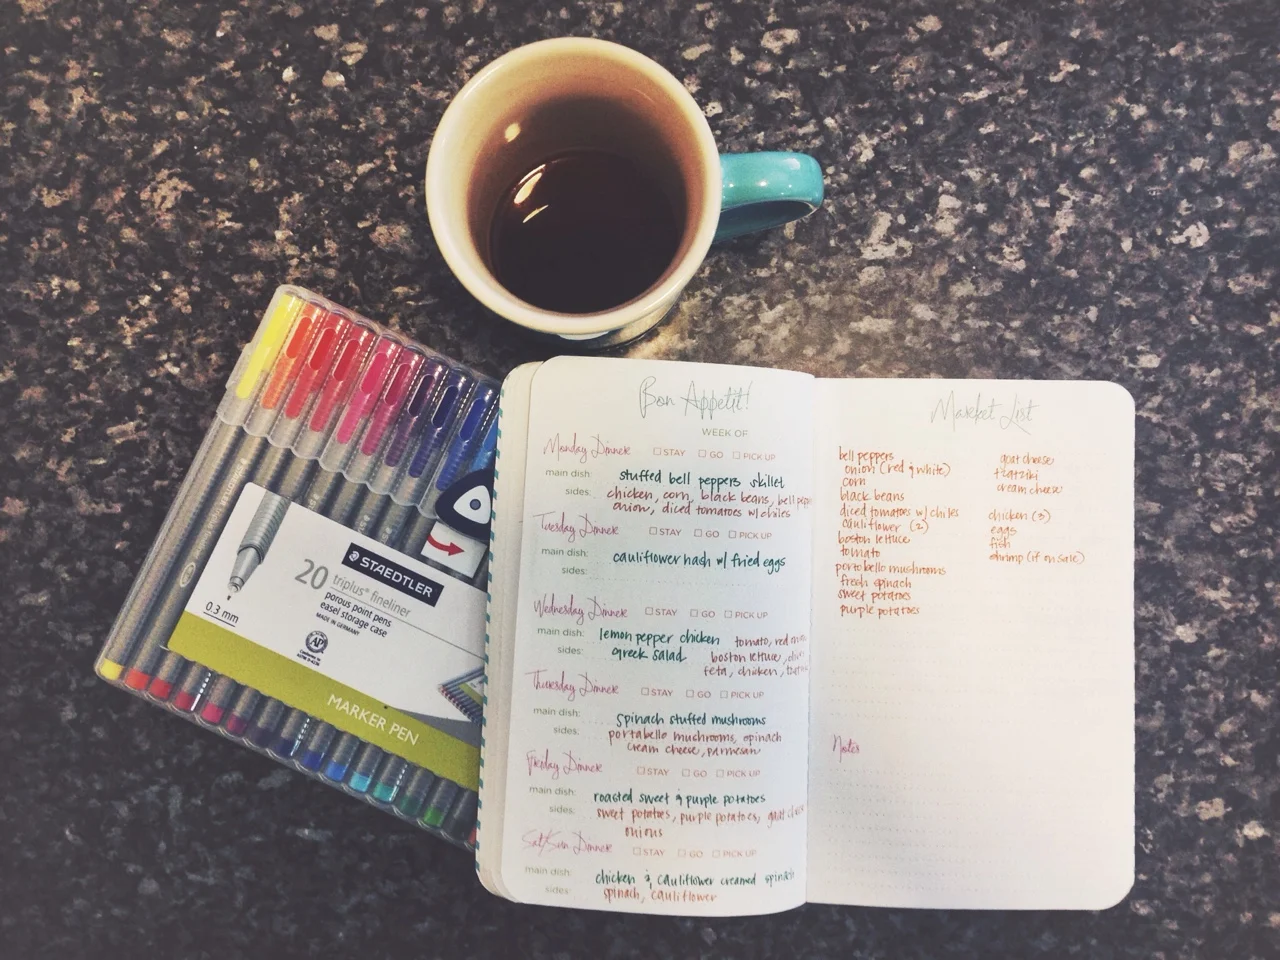 20
STAEDTLER
triplus® fineliner
porous point pens
easel storage case
MADE IN GERMANY
0.3 mm
AP
MARKER PEN
Bon Appetit!
WEEK OF
Monday Dinner STAY GO PICK UP
main dish: stuffed bell peppers skillet
sides: chicken, corn, black beans, bell
onion, diced tomatoes w/ chiles
Tuesday Dinner STAY GO PICK UP
main dish: cauliflower hash w/ fried eggs
sides:
Wednesday Dinner STAY GO PICK UP
main dish: lemon pepper chicken tomato, red
sides: greek salad boston lettuce,
feta, chicken,
Thursday Dinner STAY GO PICK UP
main dish: spinach stuffed mushrooms
sides: portabello mushrooms, spinach
cream cheese, parmesan
Friday Dinner STAY GO PICK UP
main dish: roasted sweet & purple potatoes
sides: sweet potatoes, purple potatoes, goat
onions
Sat/Sun Dinner STAY GO PICK UP
main dish: chicken & cauliflower creamed spinach
sides: spinach, cauliflower
Market List
bell peppers
onion (red & white)
corn
black beans
diced tomatoes w/ chiles
cauliflower (2)
boston lettuce
tomato
portobello mushrooms
fresh spinach
sweet potatoes
purple potatoes
goat cheese
tzatziki
cream cheese
chicken (3)
eggs
fish
shrimp (if on sale)
Notes